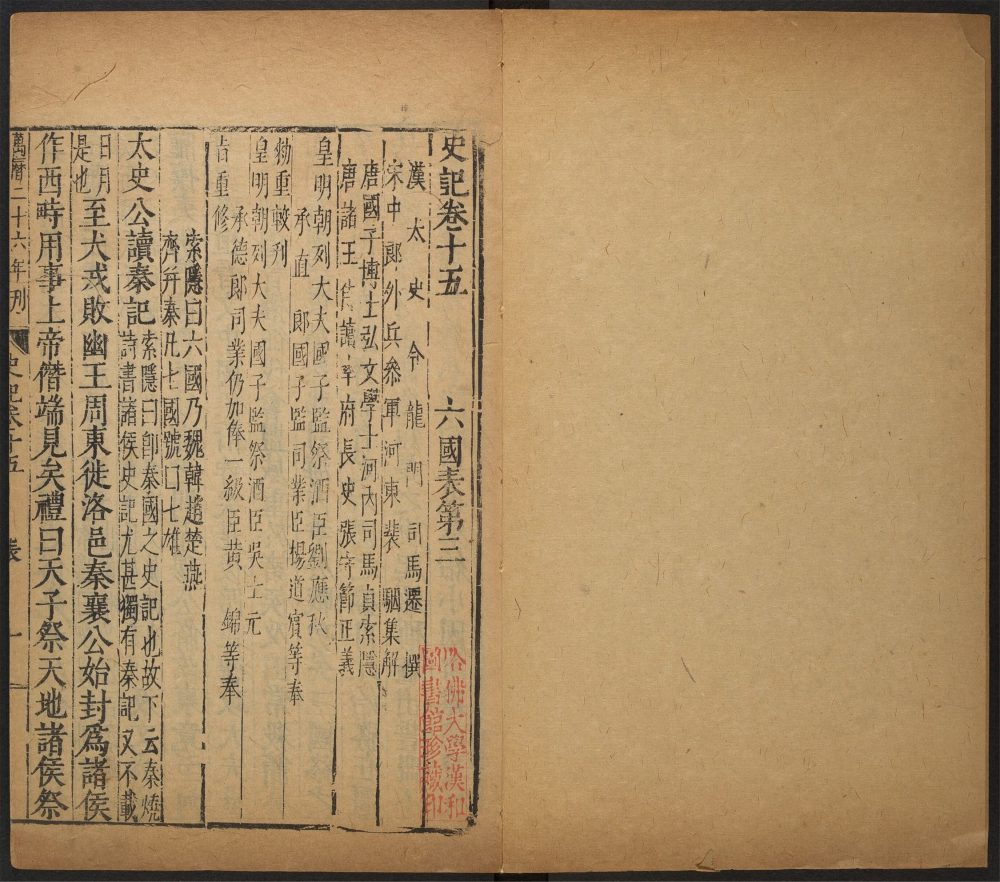 史記卷十五 六國表第三
漢太史令龍門司馬遷撰
宋中郎外兵參軍河東裴駰集解
唐國子博士弘文學士河內司馬貞索隱
唐諸王侍讀率府長史張守節正義
皇明朝列大夫國子監祭酒臣劉應秋
承直郎國子監司業臣楊道賓等奉
勑重較刋
皇明朝列大夫國子監祭酒臣吳士元
承德郎司業仍加俸一級臣黃錦等奉
旨重修
索隱曰六國乃魏韓趙楚燕
齊并秦凡七國號曰七雄
太史公讀秦記索隱曰卽秦國之史記也故下云秦燒
詩書諸侯史記尤甚獨有秦記又不載
日月
是也至犬戎敗幽王周東徙洛邑秦襄公始封爲諸侯
作西畤用事上帝僭端見矣禮曰天子祭天地諸侯祭
萬曆二十六年刋 史記卷十五 表 一
哈佛大學漢和
圖書館珍藏印